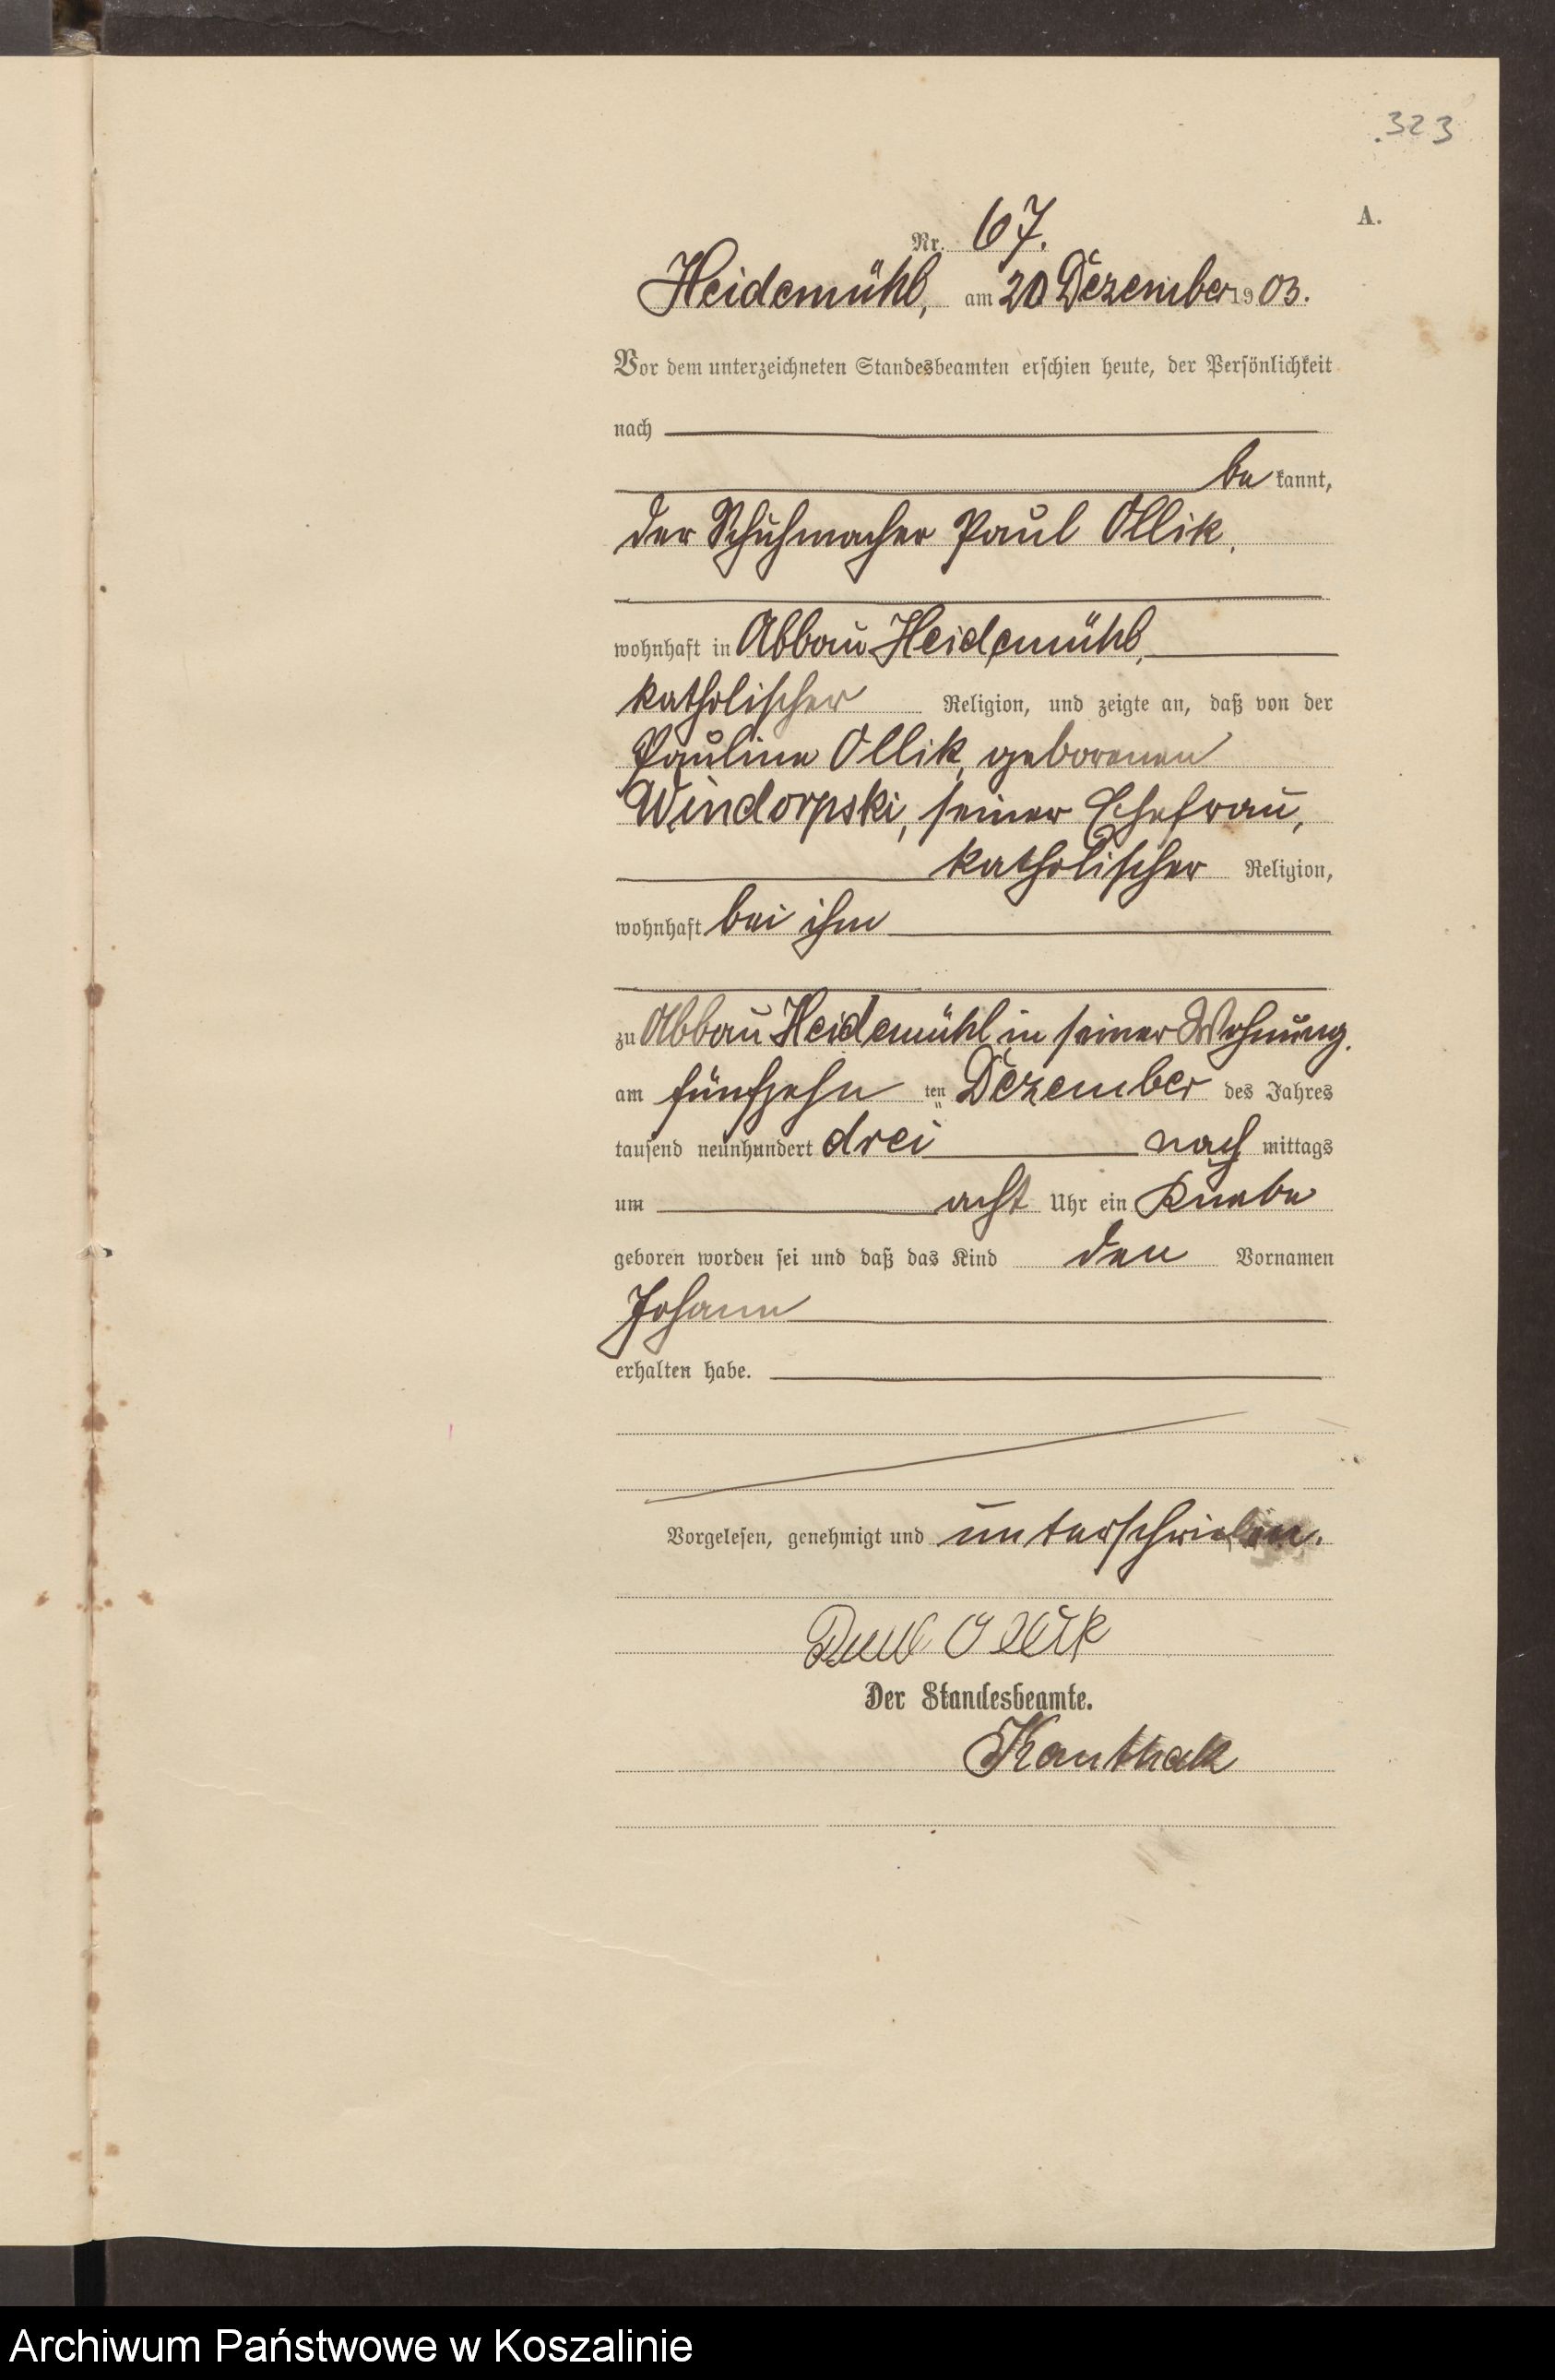 323
A.
Nr. 67.
Heidemühl, am 20 Dezember 1903.
Vor dem unterzeichneten Standesbeamten erschien heute, der Persönlichkeit
nach
be kannt,
der Schuhmacher Paul Ollik,
wohnhaft in Abbau Heidemühl,
katholischer Religion, und zeigte an, daß von der
Pauline Ollik, geborenen
Windorpski, seiner Ehefrau,
katholischer Religion,
wohnhaft bei ihm
zu Abbau Heidemühl in seiner Wohnung,
am fünfzehn ten Dezember des Jahres
tausend neunhundert drei nach mittags
um acht Uhr ein Knabe
geboren worden sei und daß das Kind den Vornamen
Johann
erhalten habe.
Vorgelesen, genehmigt und unterschrieben.
Paul Ollik
Der Standesbeamte.
Kanthak
Archiwum Państwowe w Koszalinie